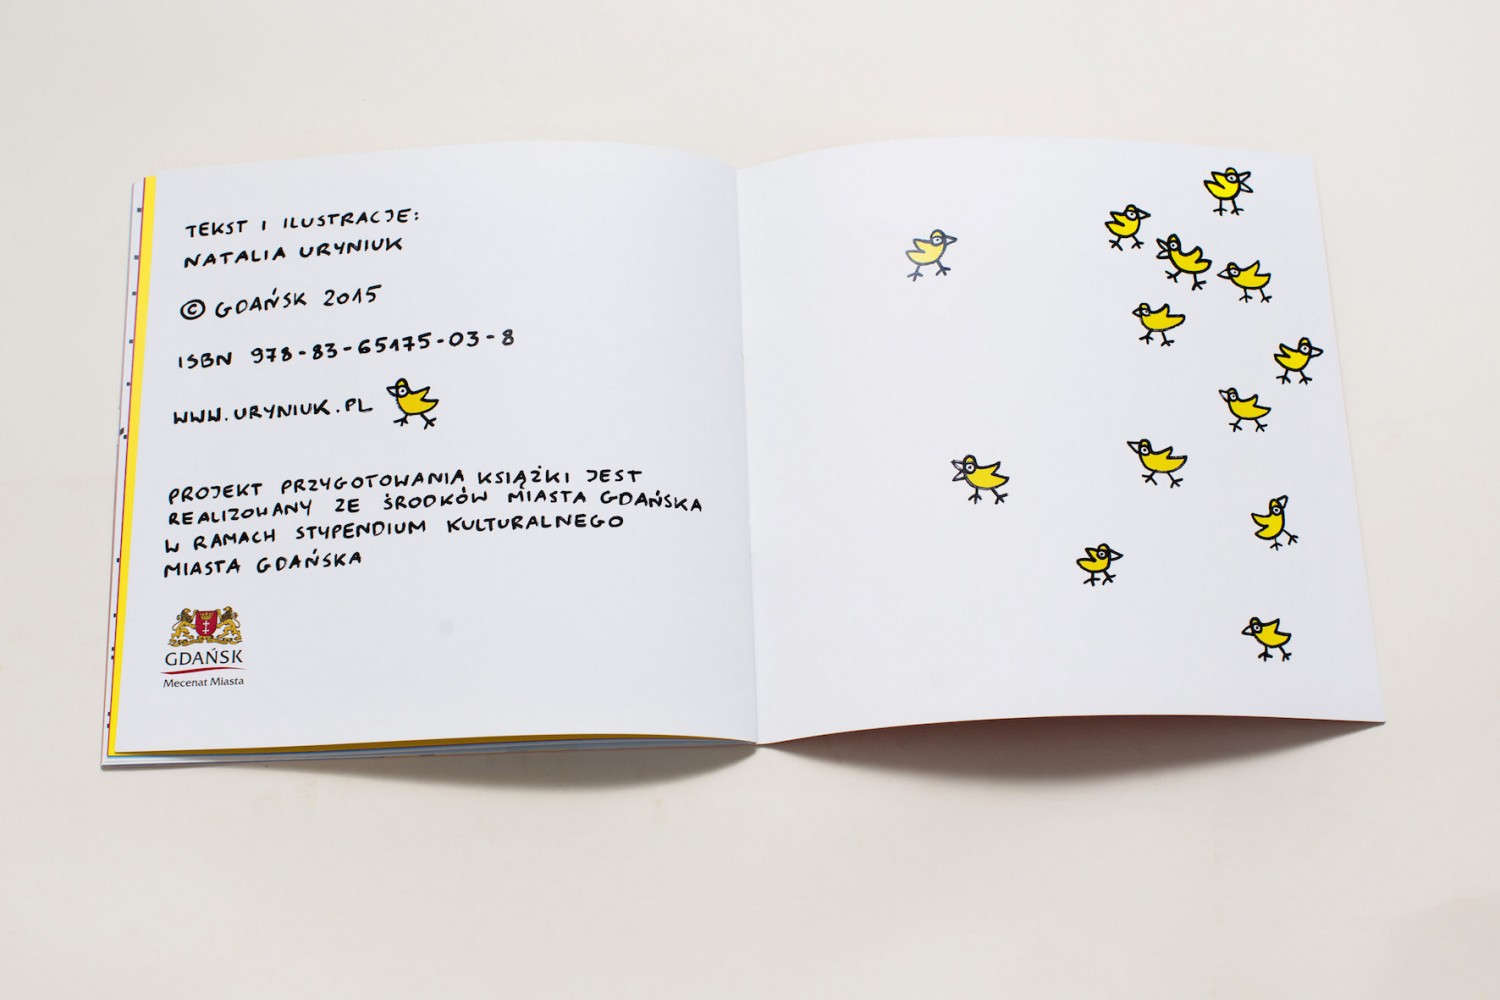 TEKST I ILUSTRACJE:
NATALIA URYNIUK
© GDAŃSK 2015
ISBN 978-83-65175-03-8
WWW.URYNIUK.PL
PROJEKT PRZYGOTOWANIA KSIĄŻKI JEST
REALIZOWANY ZE ŚRODKÓW MIASTA GDAŃSKA
W RAMACH STYPENDIUM KULTURALNEGO
MIASTA GDAŃSKA
GDAŃSK
Mecenat Miasta